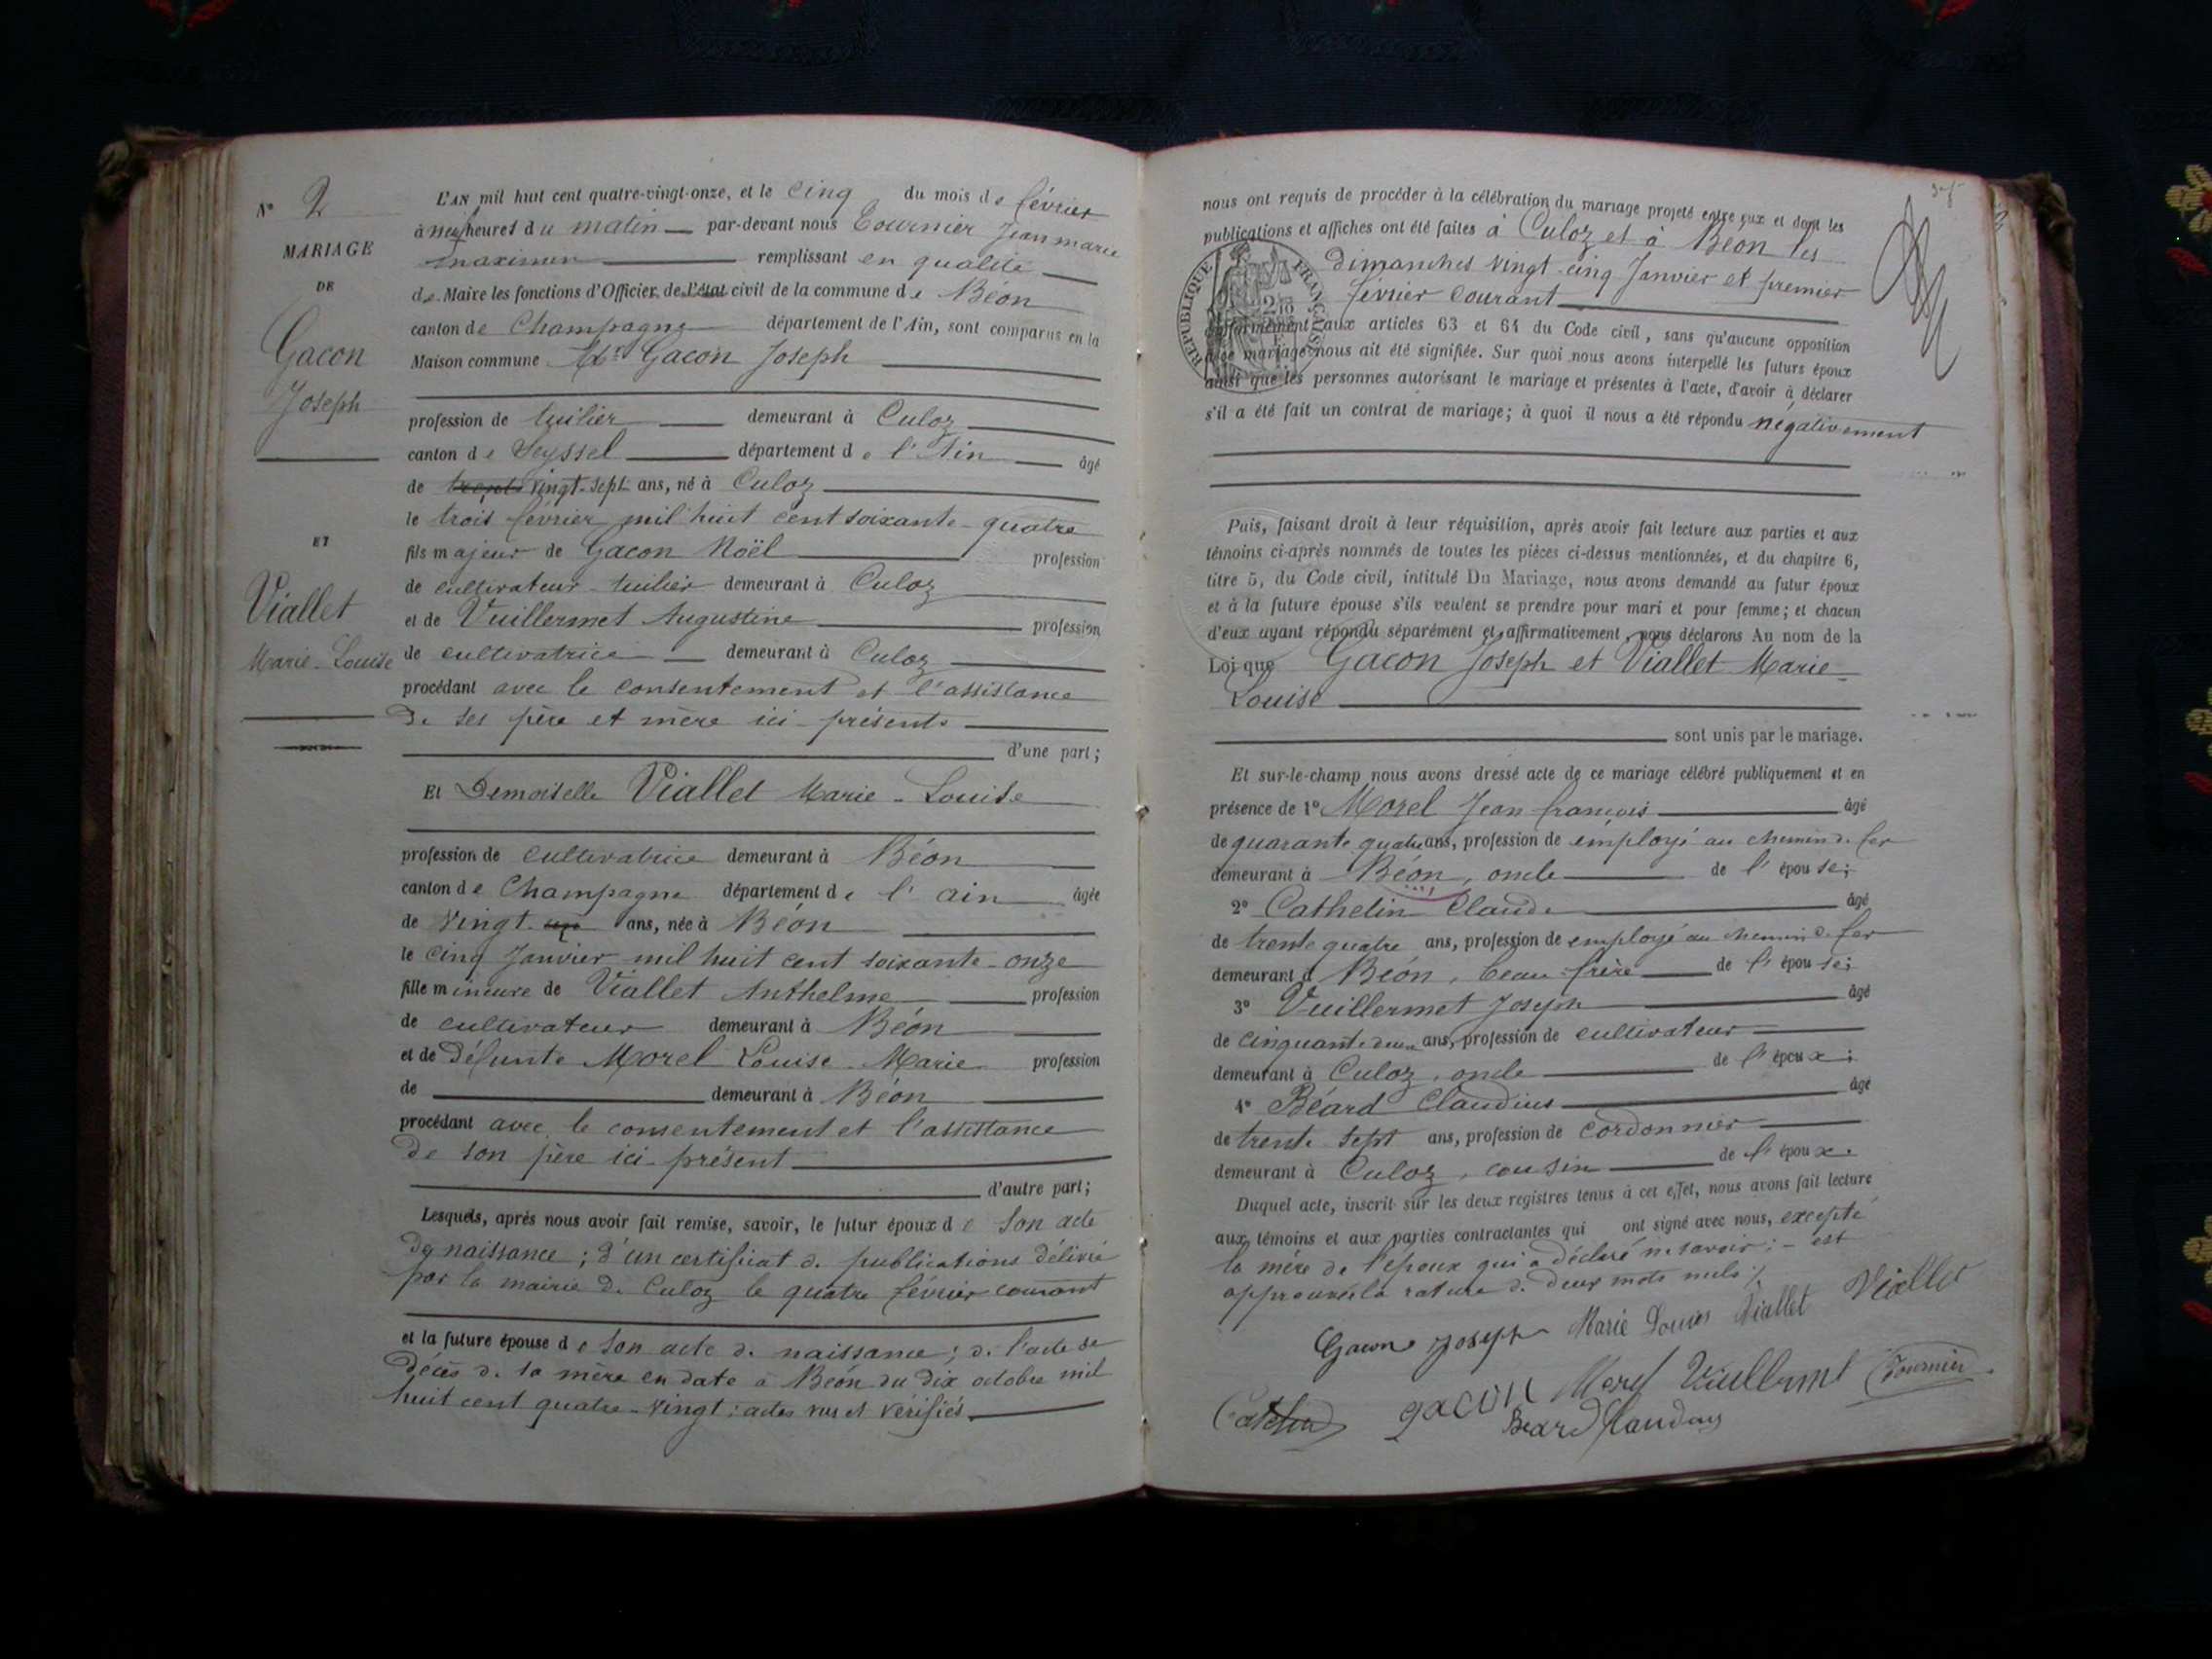 N° 2
MARIAGE
DE
Gacon
Joseph
ET
Viallet
Marie-Louise
L'AN mil huit cent quatre-vingt-onze, et le cinq du mois de février
à neuf heures du matin par-devant nous Tournier Jean marie
remplissant en qualité
de Maire les fonctions d'Officier de l'état civil de la commune de Béon
canton de Champagne département de l'Ain, sont comparus en la
Maison commune Mr Gacon Joseph
profession de tuilier demeurant à Culoz
canton de Seyssel département de l'Ain âgé
de trente vingt-sept ans, né à Culoz
le trois février mil huit cent soixante-quatre
fils majeur de Gacon Noël profession
de cultivateur-tuilier demeurant à Culoz
et de Vuillermet Augustine profession
de cultivatrice demeurant à Culoz
procédant avec le consentement et l'assistance
de ses père et mère ici-présents
d'une part;
Et Demoiselle Viallet Marie-Louise
profession de cultivatrice demeurant à Béon
canton de Champagne département de l'ain âgée
de vingt ans, née à Béon
le cinq Janvier mil huit cent soixante-onze
fille mineure de Viallet Anthelme profession
de cultivateur demeurant à Béon
et de défunte Morel Louise-Marie profession
de demeurant à Béon
procédant avec le consentement et l'assistance
de son père ici-présent
d'autre part;
Lesquels, après nous avoir fait remise, savoir, le futur époux de son acte
de naissance; d'un certificat de publications délivré
par la mairie de Culoz le quatre février courant
et la future épouse de son acte de naissance; de l'acte de
décès de sa mère en date à Béon du dix octobre mil
huit cent quatre-vingt; actes vus et vérifiés
nous ont requis de procéder à la célébration du mariage projeté entre eux et dont les
publications et affiches ont été faites à Culoz et à Béon les
dimanches vingt-cinq Janvier et premier
février courant
RÉPUBLIQUE FRANÇAISE
conformément aux articles 63 et 64 du Code civil, sans qu'aucune opposition
à ce mariage nous ait été signifiée. Sur quoi nous avons interpellé les futurs époux
ainsi que les personnes autorisant le mariage et présentes à l'acte, d'avoir à déclarer
s'il a été fait un contrat de mariage; à quoi il nous a été répondu négativement
Puis, faisant droit à leur réquisition, après avoir fait lecture aux parties et aux
témoins ci-après nommés de toutes les pièces ci-dessus mentionnées, et du chapitre 6,
titre 5, du Code civil, intitulé Du Mariage, nous avons demandé au futur époux
et à la future épouse s'ils veulent se prendre pour mari et pour femme; et chacun
d'eux ayant répondu séparément et affirmativement, nous déclarons Au nom de la
Loi que Gacon Joseph et Viallet Marie-
Louise
sont unis par le mariage.
Et sur-le-champ nous avons dressé acte de ce mariage célébré publiquement et en
présence de 1° Morel Jean françois âgé
de quarante quatre ans, profession de employé au chemin de fer
demeurant à Béon, oncle de l'épouse;
2° Cathelin Claude âgé
de trente quatre ans, profession de employé au chemin de fer
demeurant à Béon, beau-frère de l'épouse;
3° Vuillermet Joseph âgé
de cinquante deux ans, profession de cultivateur
demeurant à Culoz, oncle de l'époux;
4° Béard Claudius âgé
de trente sept ans, profession de cordonnier
demeurant à Culoz, cousin de l'époux.
Duquel acte, inscrit sur les deux registres tenus à cet effet, nous avons fait lecture
aux témoins et aux parties contractantes qui ont signé avec nous, excepté
la mère de l'époux qui a déclaré ne savoir; - est
approuvée la rature de deux mots nuls
Gacon Joseph Marie Louise Viallet Viallet
Cathelin gacon Morel Vuillermet Tournier
Beard Claudius